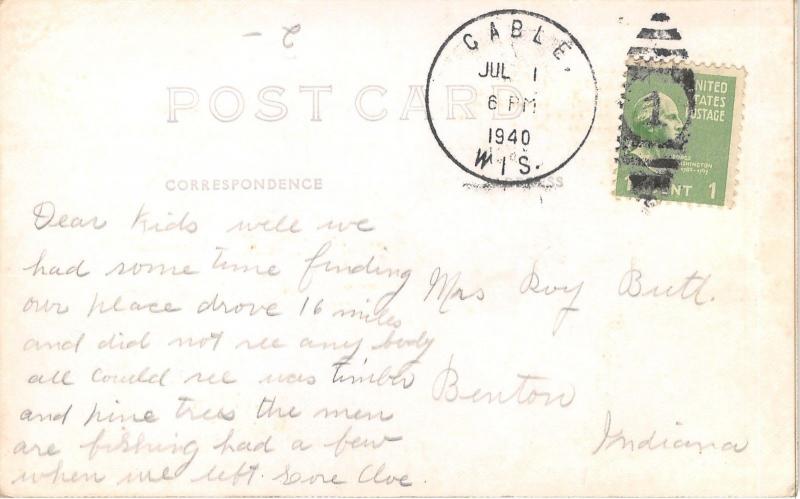 - C
CABLE,
JUL 1
6 PM
1940
WIS.
UNITED
STATES
POSTAGE
1
WASHINGTON
1 CENT 1
POST CARD
CORRESPONDENCE
ADDRESS
Dear Kids well we
had some time finding
our place drove 16 miles
and did not see any body
all could see was timber
and pine trees the men
are fishing had a few
when we left. Love Cloe.
Mrs Roy Butt.
Benton
Indiana